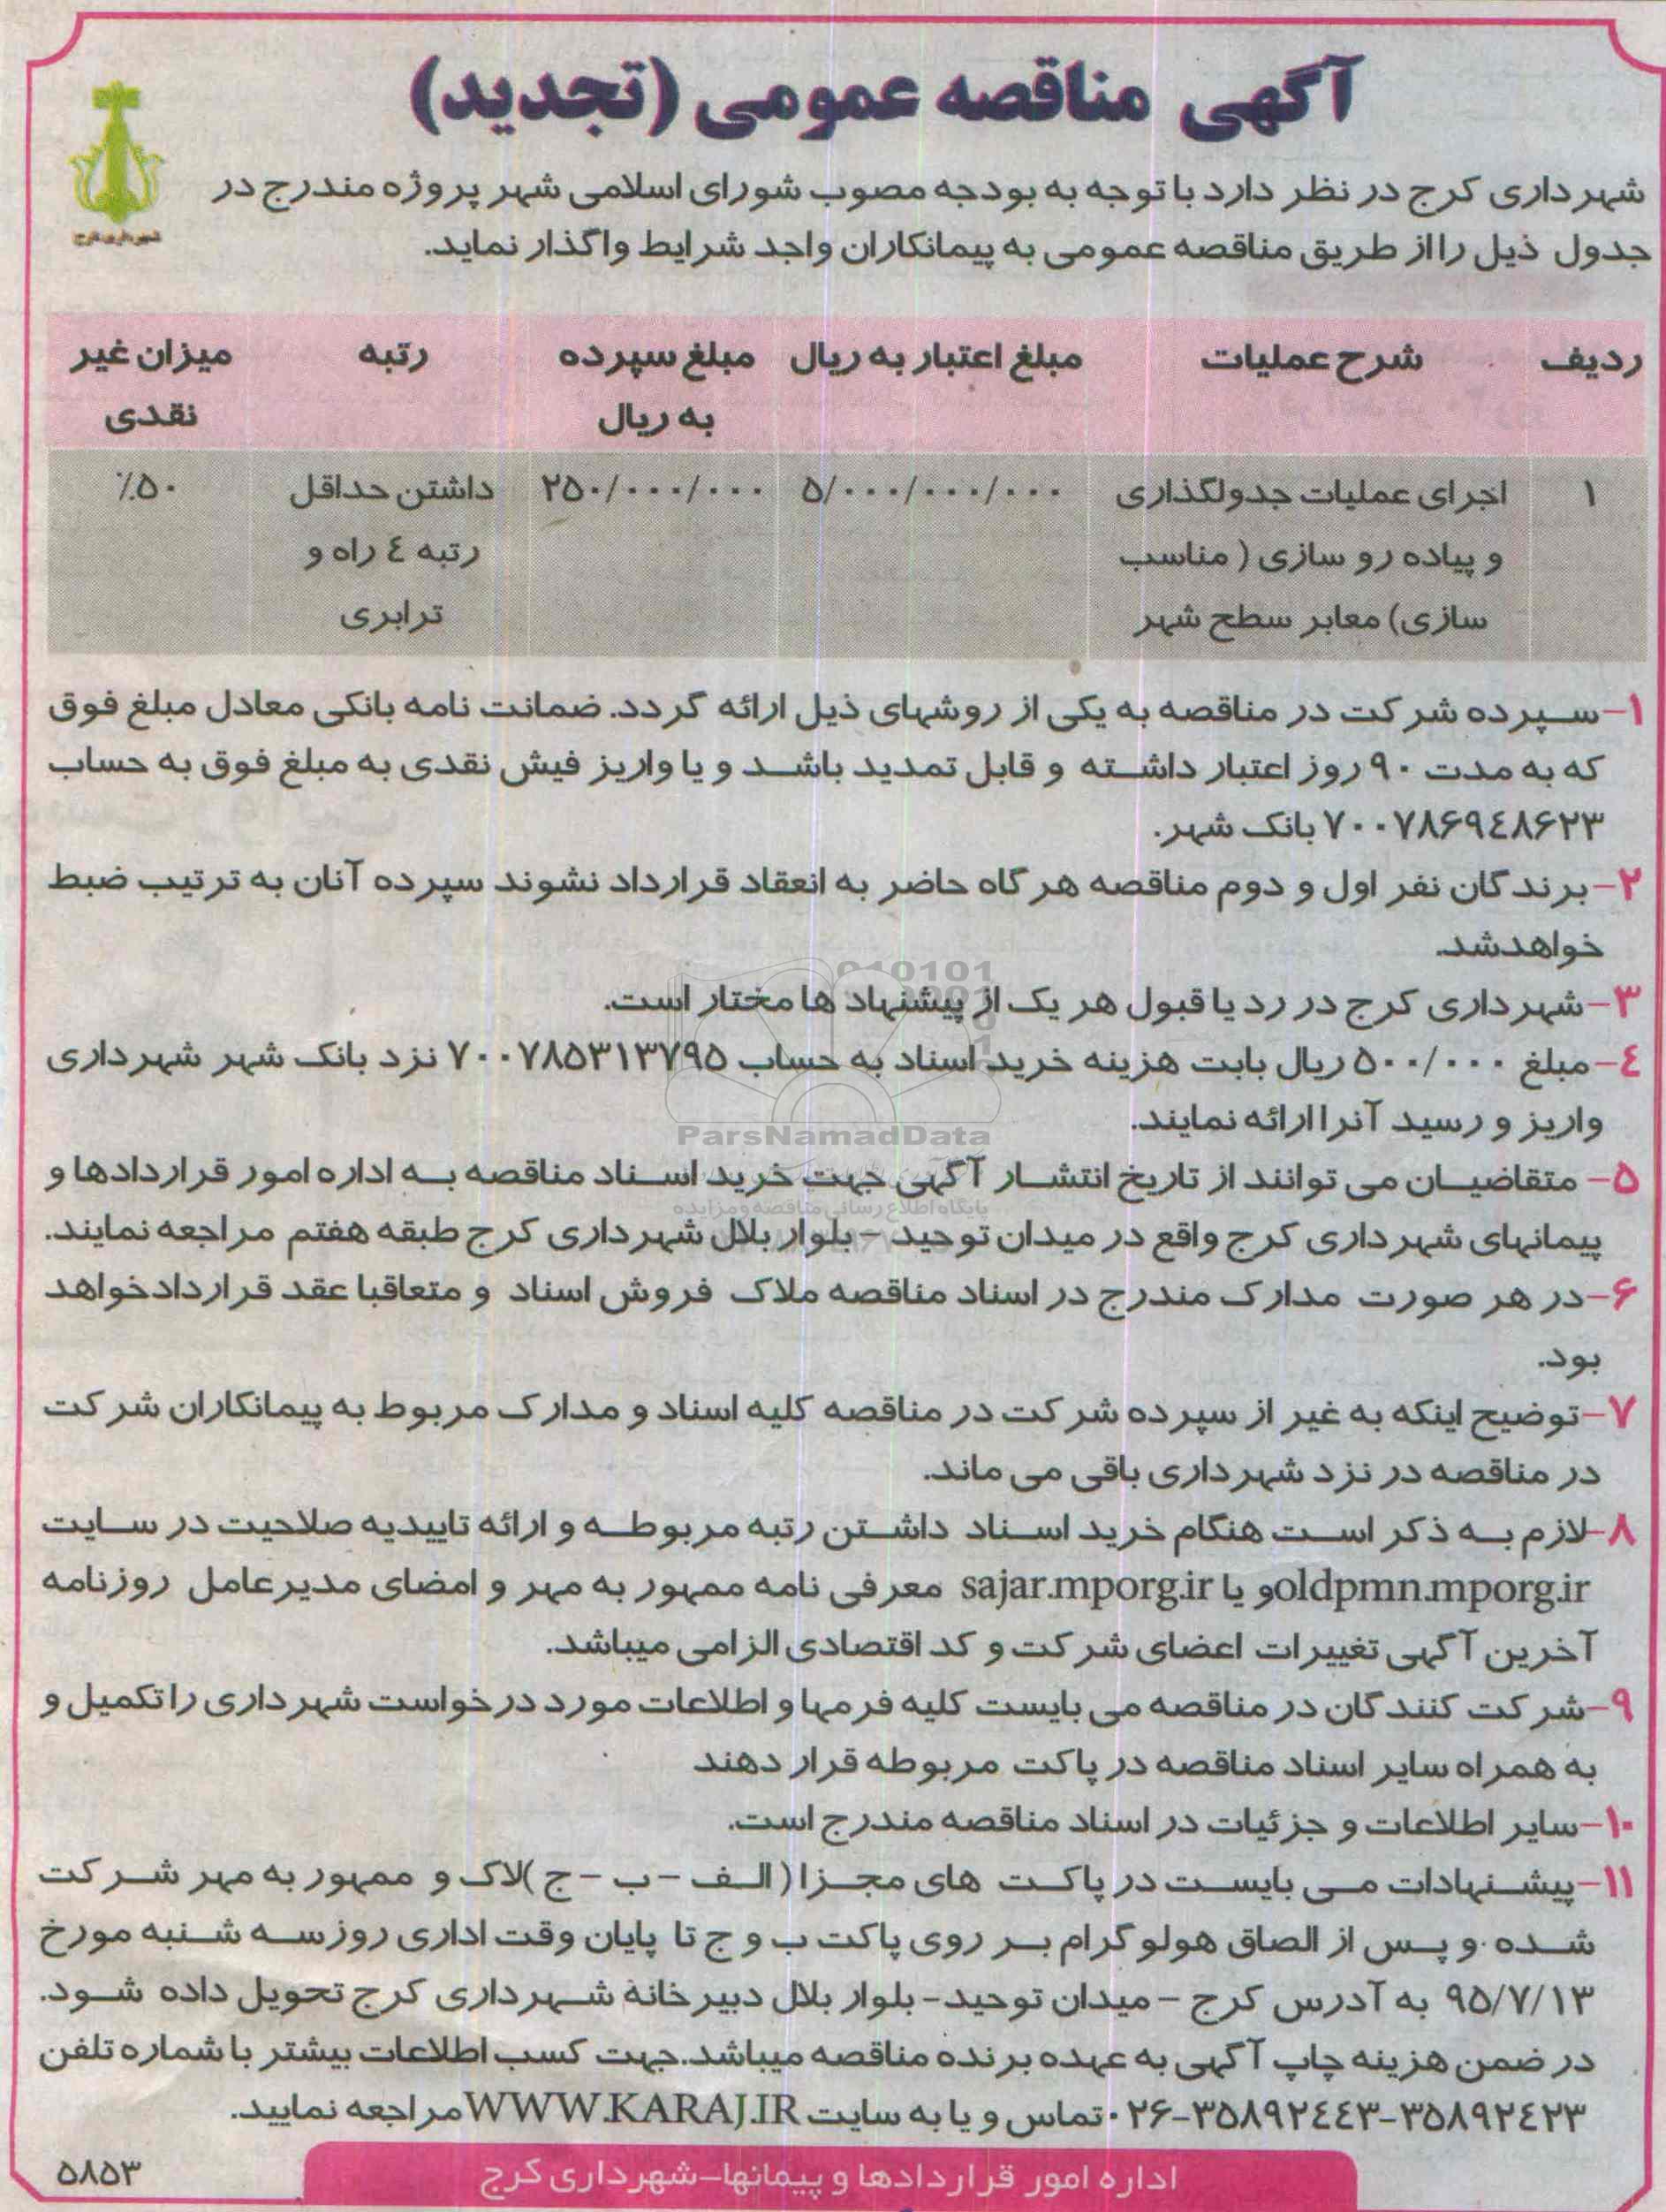 آگهی مناقصه عمومی (تجدید)
شهرداری کرج
شهرداری کرج در نظر دارد با توجه به بودجه مصوب شورای اسلامی شهر پروژه مندرج در
جدول ذیل را از طریق مناقصه عمومی به پیمانکاران واجد شرایط واگذار نماید.
ردیف شرح عملیات مبلغ اعتبار به ریال مبلغ سپرده رتبه میزان غیر
به ریال نقدی
۱ اجرای عملیات جدولگذاری ۵/۰۰۰/۰۰۰/۰۰۰ ۲۵۰/۰۰۰/۰۰۰ داشتن حداقل ۵۰٪
و پیاده رو سازی ( مناسب رتبه ٤ راه و
سازی) معابر سطح شهر ترابری
۱-سپرده شرکت در مناقصه به یکی از روشهای ذیل ارائه گردد. ضمانت نامه بانکی معادل مبلغ فوق
که به مدت ۹۰ روز اعتبار داشته و قابل تمدید باشد و یا واریز فیش نقدی به مبلغ فوق به حساب
۷۰۰۷۸۶۹٤۸۶۲۳ بانک شهر.
۲-برندگان نفر اول و دوم مناقصه هرگاه حاضر به انعقاد قرارداد نشوند سپرده آنان به ترتیب ضبط
خواهدشد.
۳-شهرداری کرج در رد یا قبول هر یک از پیشنهاد ها مختار است.
٤-مبلغ ۵۰۰/۰۰۰ ریال بابت هزینه خرید اسناد به حساب ۷۰۰۷۸۵۳۱۳۷۹۵ نزد بانک شهر شهرداری
واریز و رسید آنرا ارائه نمایند.
ParsNamadData
۵- متقاضیان می توانند از تاریخ انتشار آگهی جهت خرید اسناد مناقصه به اداره امور قراردادها و
پایگاه اطلاع رسانی مناقصه و مزایده
پیمانهای شهرداری کرج واقع در میدان توحید - بلوار بلال شهرداری کرج طبقه هفتم مراجعه نمایند.
۶-در هر صورت مدارک مندرج در اسناد مناقصه ملاک فروش اسناد و متعاقبا عقد قرارداد خواهد
بود.
۷-توضیح اینکه به غیر از سپرده شرکت در مناقصه کلیه اسناد و مدارک مربوط به پیمانکاران شرکت
در مناقصه در نزد شهرداری باقی می ماند.
۸-لازم به ذکر است هنگام خرید اسناد داشتن رتبه مربوطه و ارائه تاییدیه صلاحیت در سایت
oldpmn.mporg.ir و یا sajar.mporg.ir معرفی نامه ممهور به مهر و امضای مدیرعامل روزنامه
آخرین آگهی تغییرات اعضای شرکت و کد اقتصادی الزامی میباشد.
۹-شرکت کنندگان در مناقصه می بایست کلیه فرمها و اطلاعات مورد درخواست شهرداری را تکمیل و
به همراه سایر اسناد مناقصه در پاکت مربوطه قرار دهند
۱۰-سایر اطلاعات و جزئیات در اسناد مناقصه مندرج است.
۱۱-پیشنهادات می بایست در پاکت های مجزا (الف - ب - ج )لاک و ممهور به مهر شرکت
شده و پس از الصاق هولوگرام بر روی پاکت ب و ج تا پایان وقت اداری روز سه شنبه مورخ
۹۵/۷/۱۳ به آدرس کرج - میدان توحید- بلوار بلال دبیرخانه شهرداری کرج تحویل داده شود.
در ضمن هزینه چاپ آگهی به عهده برنده مناقصه میباشد.جهت کسب اطلاعات بیشتر با شماره تلفن
۰۲۶-۳۵۸۹۲٤٤۳-۳۵۸۹۲٤۲۳ تماس و یا به سایت WWW.KARAJ.IR مراجعه نمایید.
اداره امور قراردادها و پیمانها-شهرداری کرج
۵۸۵۳